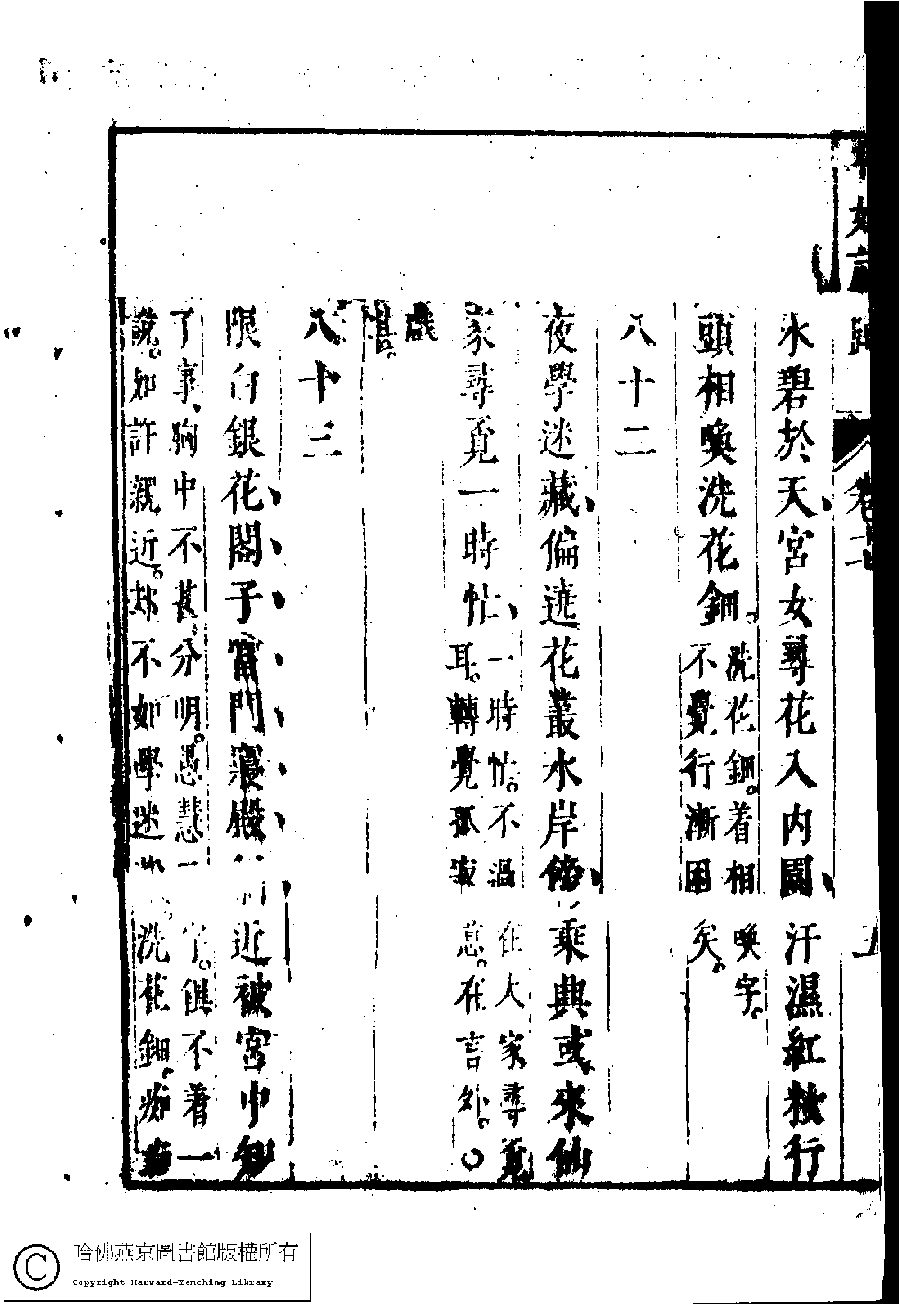 水碧於天、宮女尋花入內園、汗濕紅粧行
頭相喚洗花鈿。
洗花鈿。着相喚字。
不覺行漸困矣。
八十二
夜學迷藏、偏遶花叢水岸傍、乘興或來仙
家尋覓一時忙、
一時忙。不過在大家尋覓
耳。轉覺孤寂意。在言外。○
八十三
限白銀花、閣、子、當、門、寢、殿、近被宮中知
了事、胸中不甚分明。愚慧一 俱不着一
說。如許親近。却不如學迷 洗花鈿。痴